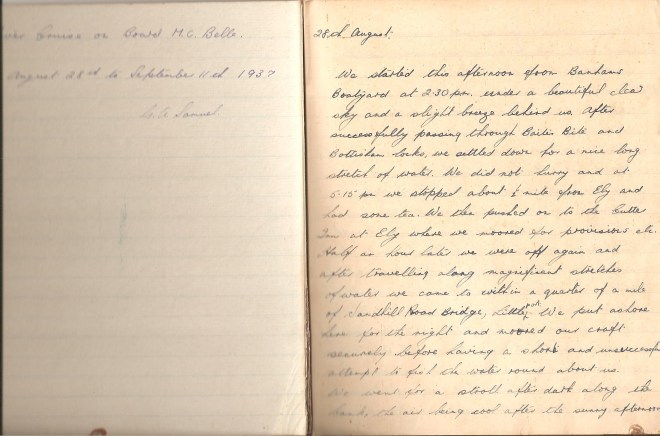 Cruise on Board M.C. Belle.
August 28th to September 11th 1937
Samuel.
28th August.
We started this afternoon from Banhams
Boatyard at 2:30 pm. under a beautiful clear
sky and a slight breeze behind us. After
successfully passing through Baits Bite and
Bottisham locks, we settled down for a nice long
stretch of water. We did not hurry and at
5.15 pm we stopped about ½ mile from Ely and
had some tea. We then pushed on to the Cutter
Inn at Ely where we moored for provisions etc.
Half an hour later we were off again and
after travelling along magnificent stretches
of water we came to within a quarter of a mile
of Sandhill Road Bridge, Littleport. We put ashore
here for the night and moored our craft
securely before having a short and unsuccessful
attempt to fish the water round about us.
We went for a stroll after dark along the
bank, the air being cool after the sunny afternoon